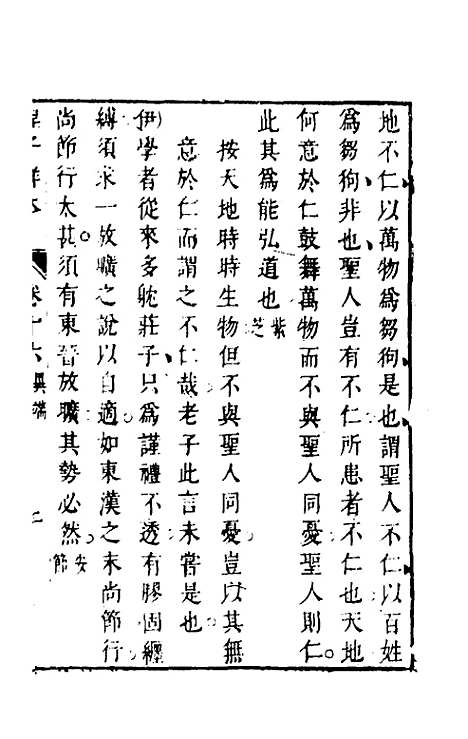 地不仁以萬物爲芻狗是也謂聖人不仁以百姓
爲芻狗非也聖人豈有不仁所患者不仁也天地
何意於仁鼓舞萬物而不與聖人同憂聖人則仁
此其爲能弘道也紫芝
按天地時時生物但不與聖人同憂豈以其無
意於仁而謂之不仁哉老子此言未嘗是也
伊學者從來多躭莊子只爲謹禮不透有膠固纏
縛須求一放曠之說以自適如東漢之末尚節行
尚節行太甚須有東晉放曠其勢必然安節
卷十六異端